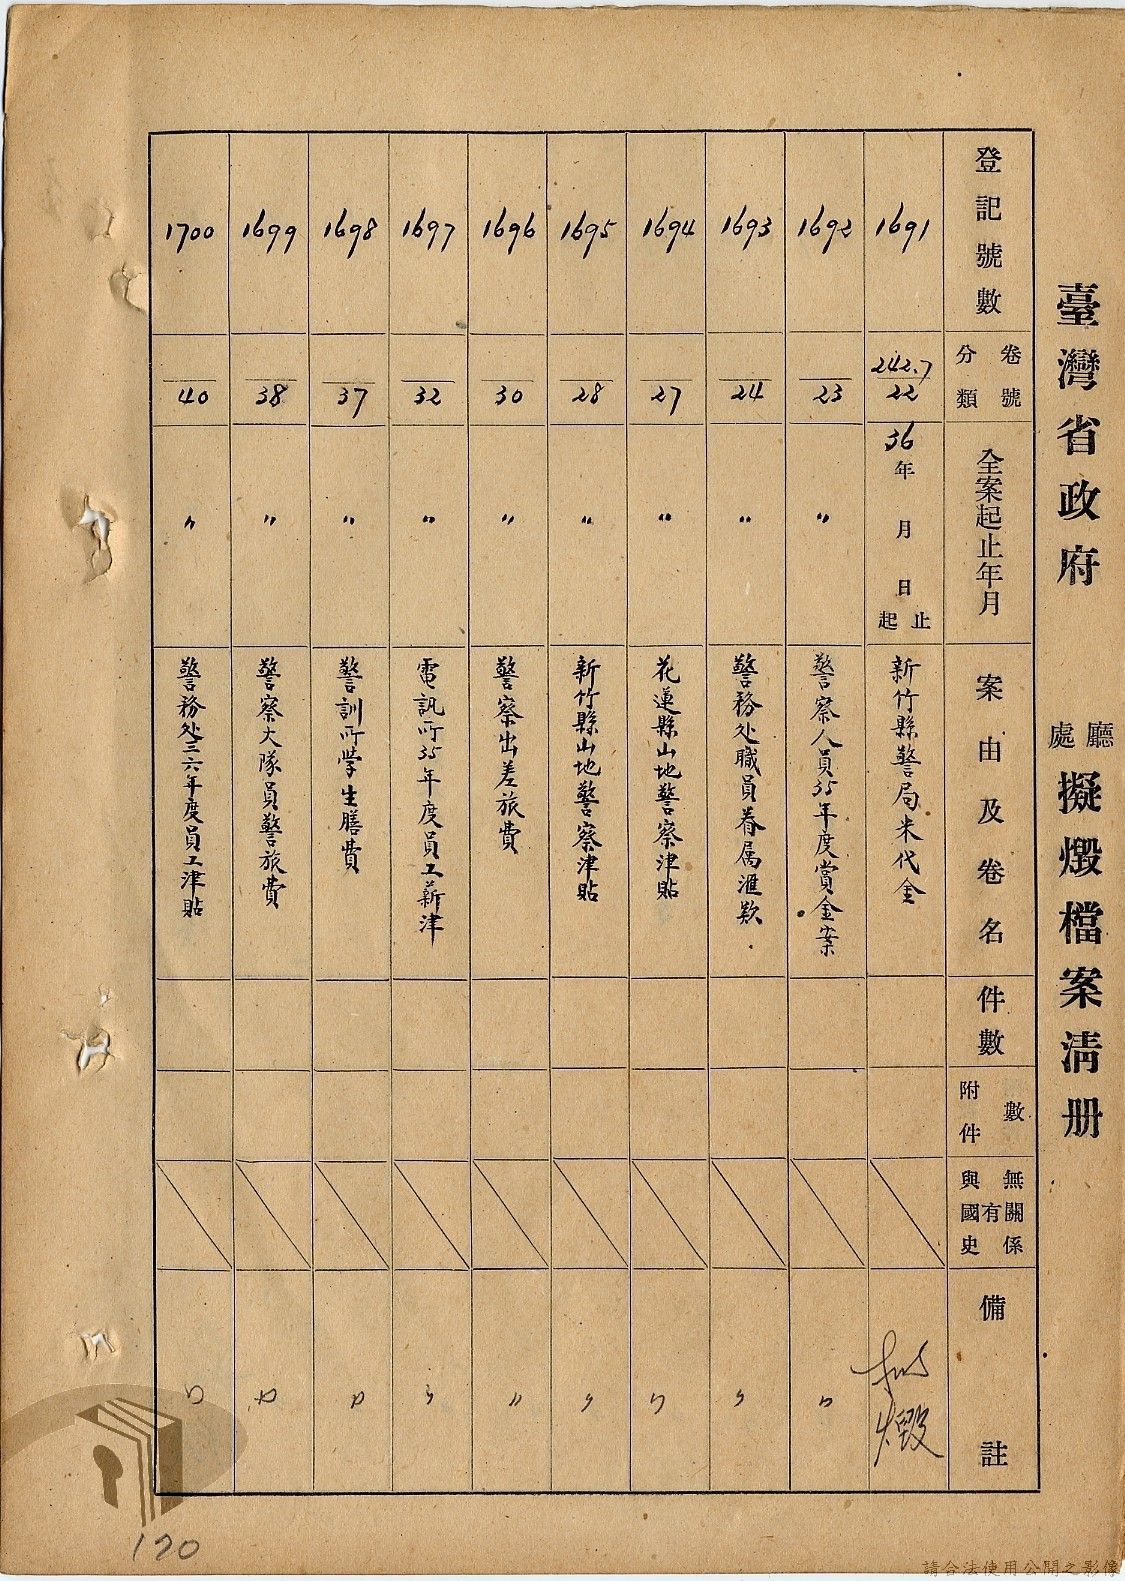 臺灣省政府 廳處 擬燬檔案清册
登記號數
卷號
分類
全案起止年月
案由及卷名
件數
附件數
與國史有無關係
備註
1691
242.7
22
36年 月 日 起止
新竹縣警局米代金
燬
1692
23
〃
警察人員35年度賞金案
〃
1693
24
〃
警務处職員眷属滙欵
〃
1694
27
〃
花蓮縣山地警察津貼
〃
1695
28
〃
新竹縣山地警察津貼
〃
1696
30
〃
警察出差旅費
〃
1697
32
〃
電訊所35年度員工薪津
〃
1698
37
〃
警訓所学生膳費
〃
1699
38
〃
警察大隊員警旅費
〃
1700
40
〃
警務处三六年度員工津貼
〃
120
請合法使用公開之影像